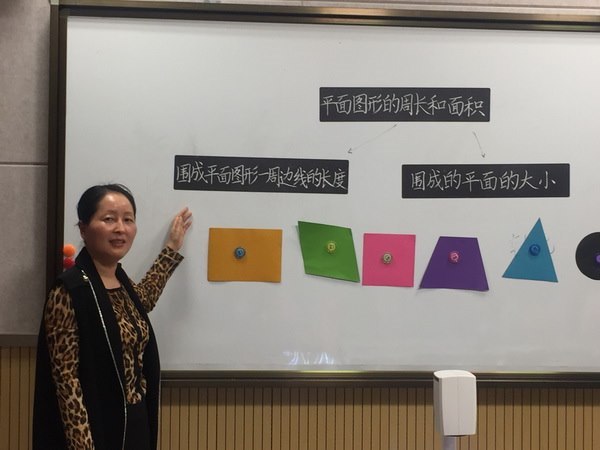 平面图形的周长和面积
围成平面图形一周边线的长度
围成的平面的大小